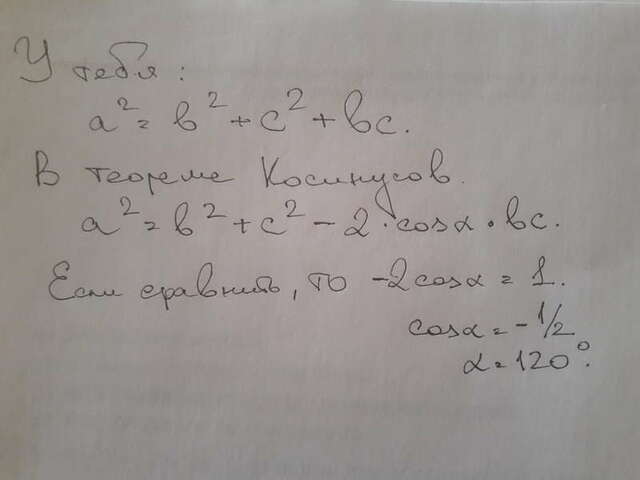 У тебя:
a² = b² + c² + bc.
В теореме Косинусов.
a² = b² + c² - 2·cosα·bc.
Если сравнить, то -2cosα = 1.
cosα = -1/2
α = 120°.